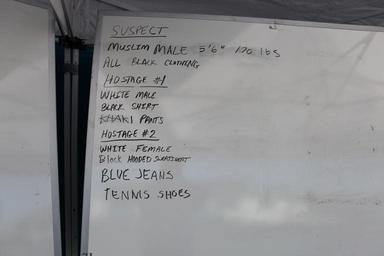 SUSPECT
MUSLIM MALE 5'6" 170 lbs
ALL BLACK CLOTHING
HOSTAGE #1
WHITE MALE
BLACK SHIRT
KHAKI PANTS
HOSTAGE #2
WHITE FEMALE
Black HOODED SWEATSHIRT
BLUE JEANS
TENNIS SHOES